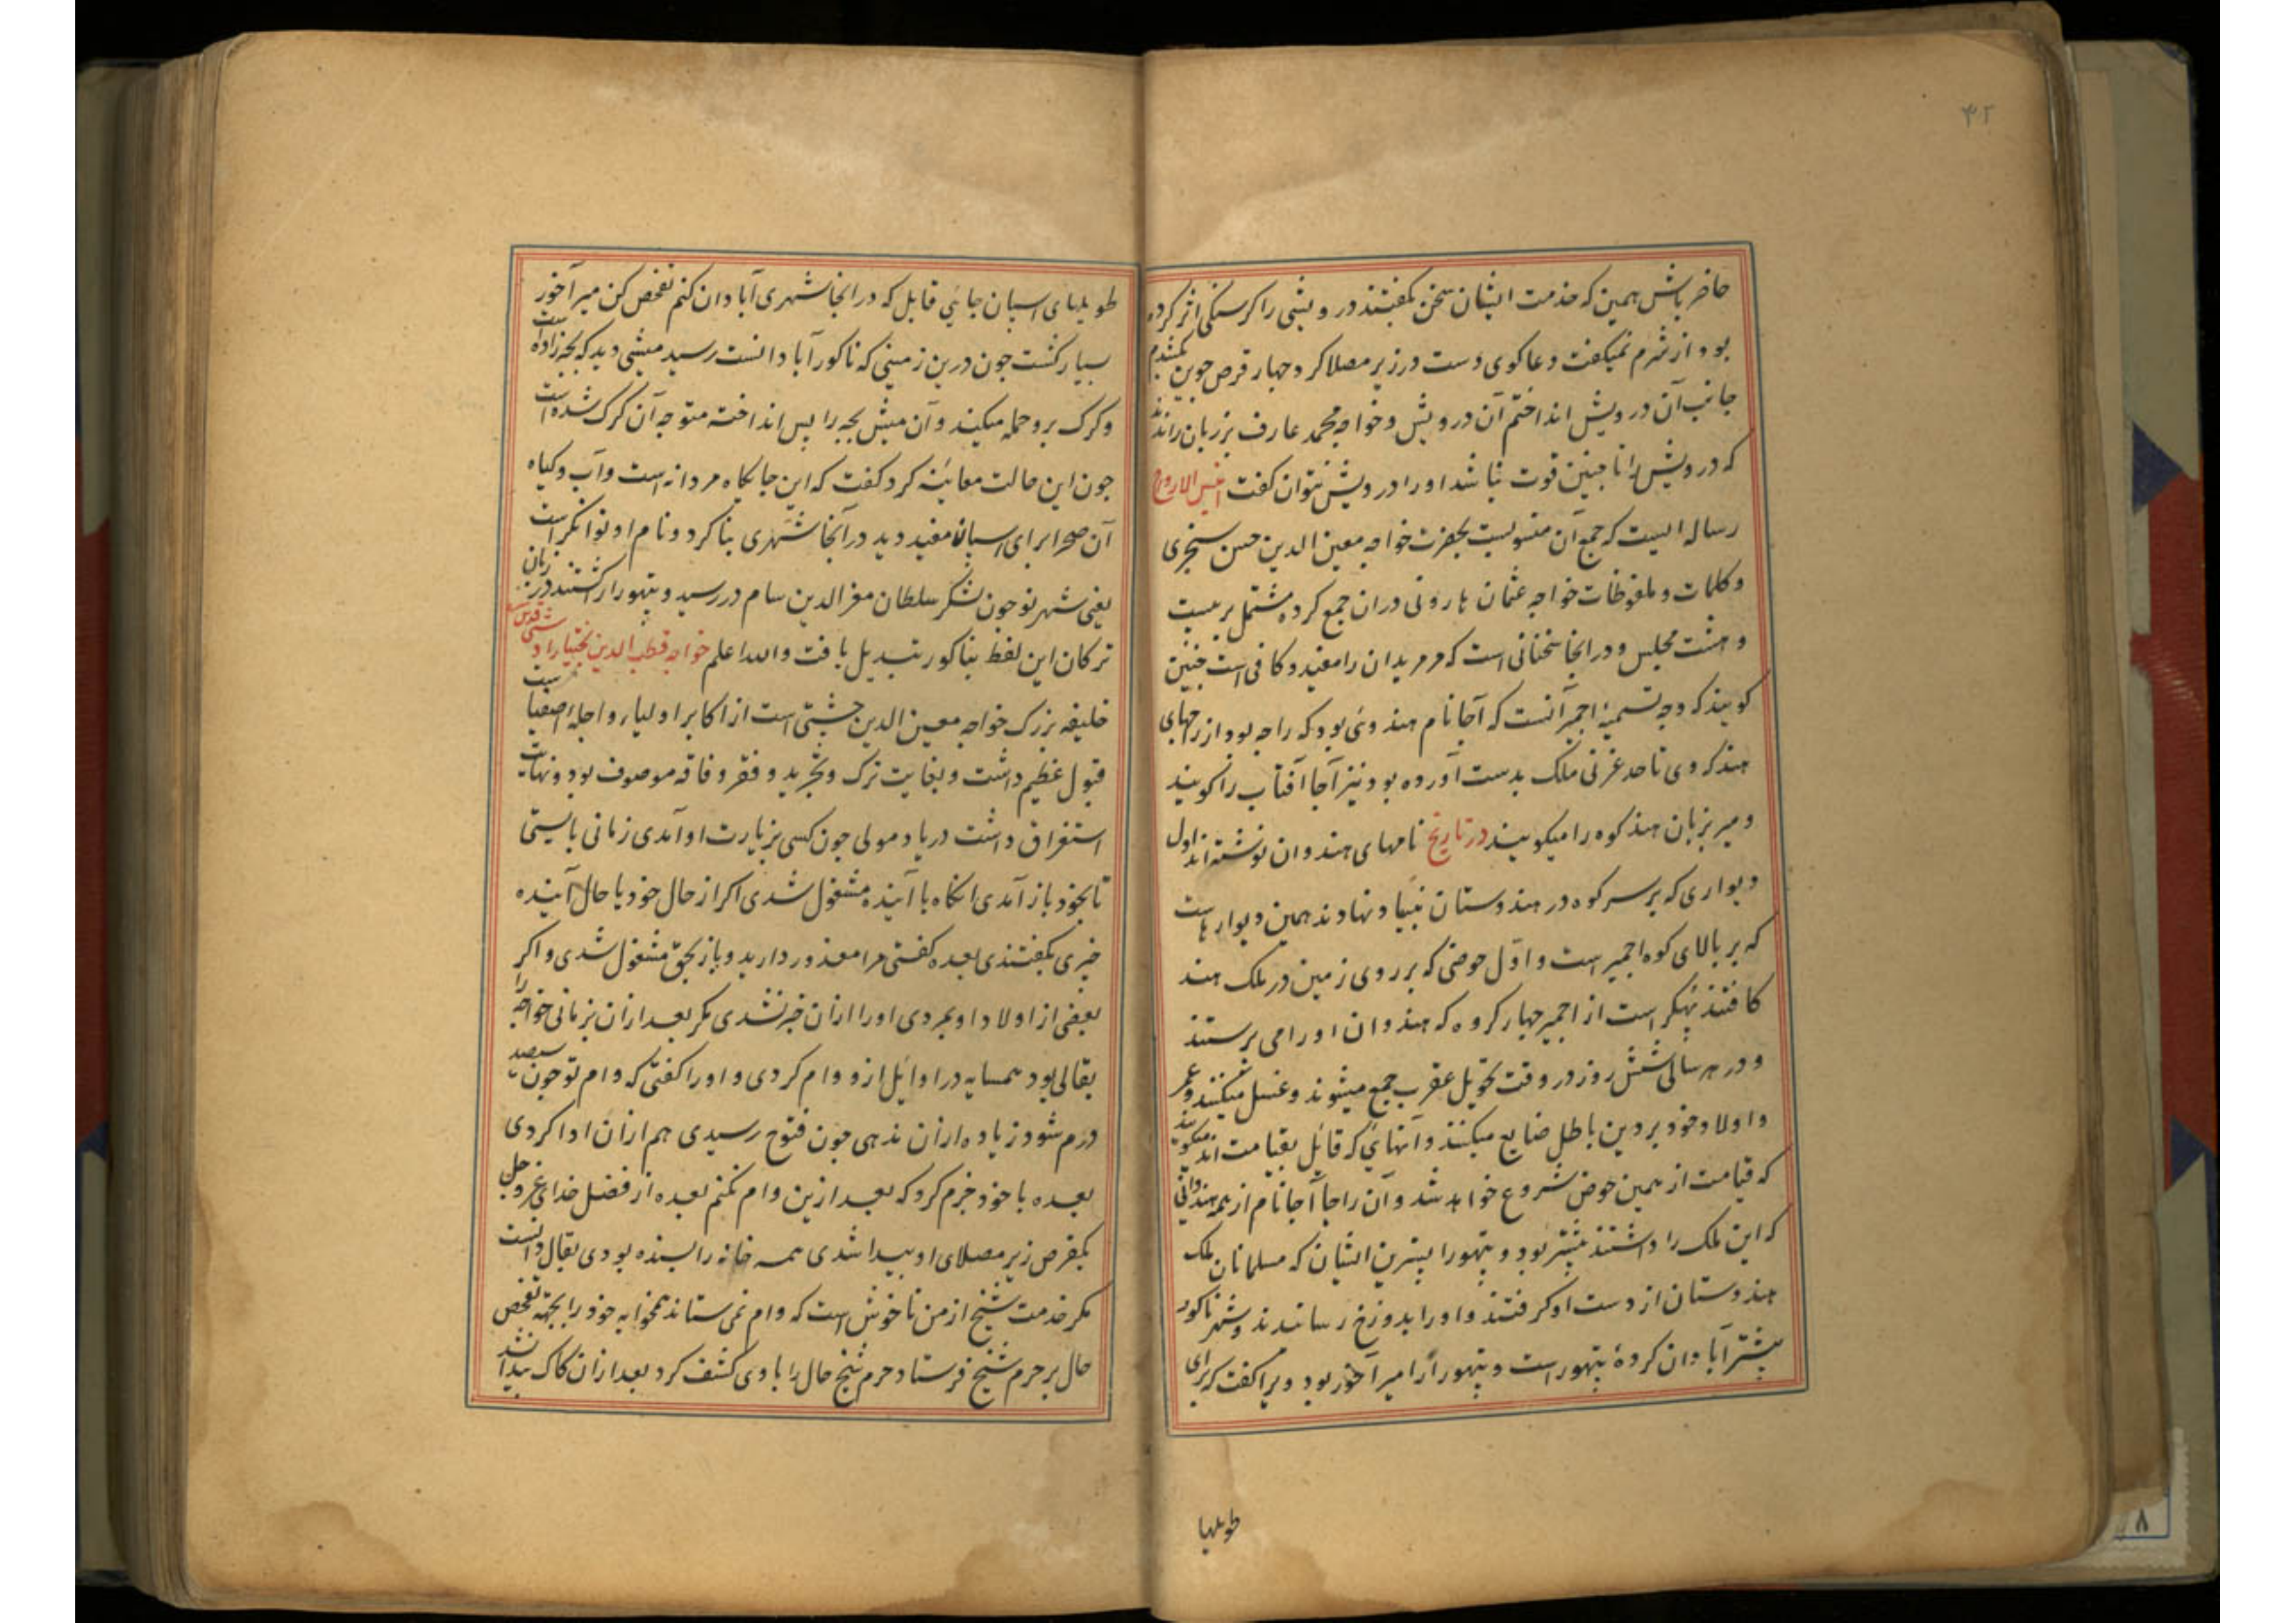 ۴۲
حاضر باش همین که خدمت ایشان سخن بگفتند درویشی را کرسنکی اثر کرده
بود از شرم نمیکفت دعاکوی دست در زیر مصلا کرد و چهار قرص جوین کشیدم
جانب آن درویش انداختم آن درویش و خواجه محمد عارف بر زبان راندند
که درویش را تا چنین قوت نباشد او را درویش نتوان کفت انیس الارواح
رساله ایست که جمع آن منسوبست بحضرت خواجه معین الدین حسن سنجری
و کلمات و ملفوظات خواجه عثمان هارونی دران جمع کرده مشتمل بر بیست
و هشت مجلس و در انجا سخنانی است که مر مریدان را مفید و کافی است چنین
کویند که وجه تسمیهٔ اجمیر آنست که آجا نام هندوئی بود که راجه بود از راجهای
هند که وی تا حد غزنی ملک بدست آورده بود و نیز آجا آفتاب را کویند
و میر بزبان هند کوه را میکویند در تاریخ نامهای هندوان نوشته اند اول
دیواری که بر سر کوه در هندوستان بنیاد نهادند همین دیوارهاست
که بر بالای کوه اجمیر است و اول حوضی که بر روی زمین در ملک هند
کافتند پهکر است از اجمیر چهار کروه که هندوان او را می پرستند
و در هر سالی شش روز در وقت تحویل عقرب جمع میشوند و غسل میکنند و عمر
و اولاد خود بر دین باطل ضایع میکنند و آنهائی که قائل بقیامت اند میکویند
که قیامت از همین حوض شروع خواهد شد و آن راجا آجا نام از همه هندوانی
که این ملک را داشتند پیشتر بود و پتهورا پسترین ایشان که مسلمانان ملک
هندوستان از دست او کرفتند و او را بدوزخ رسانیدند و شهر ناکور
پیشتر آبادان کردهٔ پتهور است و پتهورا را میر آخور بود ویرا کفت که برای
طویلها
طویلهای اسپان جائی قابل که در انجا شهری آبادان کنم تفحص کن میر آخور
بسیار کشت چون درین زمینی که ناکور آبادانست رسید میشی دید که بچه زاده است
و کرک برو حمله میکند و آن میش بچه را پس انداخته متوجه آن کرک شده است
چون این حالت معاینه کرد کفت که این جایکاه مردانه است و آب و کیاه
آن صحرا برای اسپان مفید دید در آنجا شهری بنا کرد و نام او نوانکر است
یعنی شهر نو چون لشکر سلطان معز الدین سام در رسید و پتهورا را کشتند در زبان
ترکان این لفظ بناکور تبدیل یافت والله اعلم خواجه قطب الدین بختیار اوشی قدس سره
خلیفه بزرک خواجه معین الدین چشتی است از اکابر اولیاء و اجله اصفیاست
قبول عظیم داشت و بغایت ترک و تجرید و فقر و فاقه موصوف بود و نهایت
استغراق داشت در یاد مولی چون کسی بزیارت او آمدی زمانی بایستی
تا بخود باز آمدی انکاه با آینده مشغول شدی اکر از حال خود یا حال آینده
خبری بکفتندی بعده کفتی مرا معذور دارید و باز بحق مشغول شدی و اکر
بعضی از اولاد او بمردی او را ازان خبر نشدی مکر بعد ازان بزمانی خواجه را
بقالی بود همسایه در اوائل ازو وام کردی و او را کفتی که وام تو چون سیصد
درم شود زیاده ازان ندهی چون فتوح رسیدی هم ازان ادا کردی
بعده با خود جزم کرد که بعد ازین وام نکنم بعده از فضل خدای عز و جل
یکقرص زیر مصلای او پیدا شدی همه خانه را بسنده بودی بقال دانست
مکر خدمت شیخ از من ناخوش است که وام نمی ستاند همخوابه خود را بجهة تفحص
حال بر حرم شیخ فرستاد حرم شیخ حال را با وی کشف کرد بعد ازان کاک پیدا نشد
۸